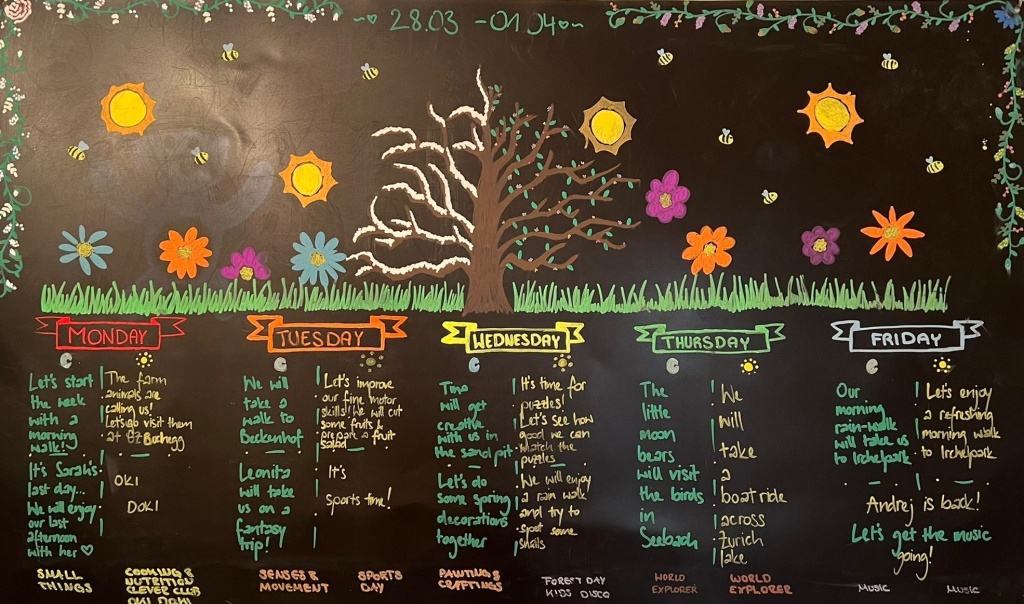 28.03 - 01.04
MONDAY
Let's start
the week
with a
morning
walk!
It's Sarah's
last day...
We will enjoy
our last
afternoon
with her
The farm
animals are
calling us!
Let's go visit them
at GZ Buchegg
OKI
DOKI
TUESDAY
We will
take a
walk to
Beckenhof
Leonita
will take
us on a
fantasy
trip!
Let's improve
our fine motor
skills! We will cut
some fruits &
prepare a fruit
salad
It's
sports time!
WEDNESDAY
Tino
will get
creative
with us in
the sand pit
Let's do
some spring
decorations
together
It's time for
puzzles!
Let's see how
good we can
match the
puzzles
We will enjoy
a rain walk
and try to
spot some
snails
THURSDAY
The
little
moon
bears
will visit
the birds
in
Seebach
We
will
take
a
boatride
across
Zürich
lake
FRIDAY
Our
morning
rain-walk
will take us
to Irchelpark
Let's enjoy
a refreshing
morning walk
to Irchelpark
Andrej is back!
Let's get the music
going!
SMALL
THINGS
COOKING &
NUTRITION
CLEVER CLUB
OKI DOKI
SENSES &
MOVEMENT
SPORTS
DAY
PAINTING &
CRAFTINGS
FOREST DAY
KIDS DISCO
WORLD
EXPLORER
WORLD
EXPLORER
MUSIC
MUSIC